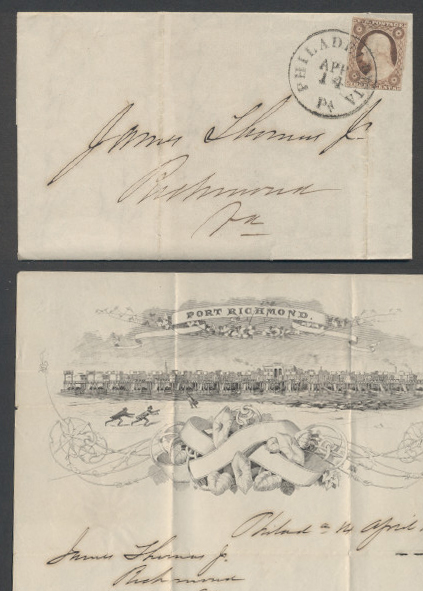 PHILADE
APR
14
PA
VI
POSTAGE
James Thomas Jr.
Richmond
Va
PORT RICHMOND.
Philad a 14 April
James Thomas Jr.
Richmond